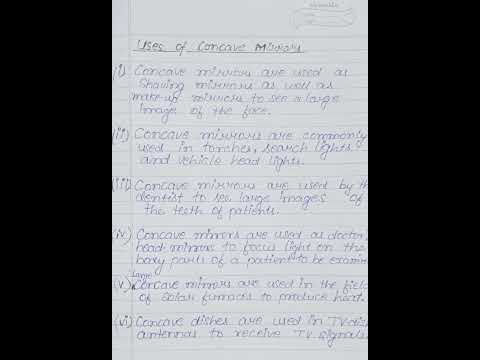 Uses of Concave Mirrors
(i) Concave mirrors are used as
shaving mirrors as well as
make-up mirrors to see a large
image of the face.
(ii) Concave mirrors are commonly
used in torches, search lights
and vehicle head lights.
(iii) Concave mirrors are used by th
dentist to see large images of
the teeth of patients.
(iv) Concave mirrors are used as doctor
head mirrors to focus light on the
body parts of a patient to be examin
large
(v) Concave mirrors are used in the field
of solar furnaces to produce heat.
(vi) Concave dishes are used in TV dis
antennas to receive TV signals